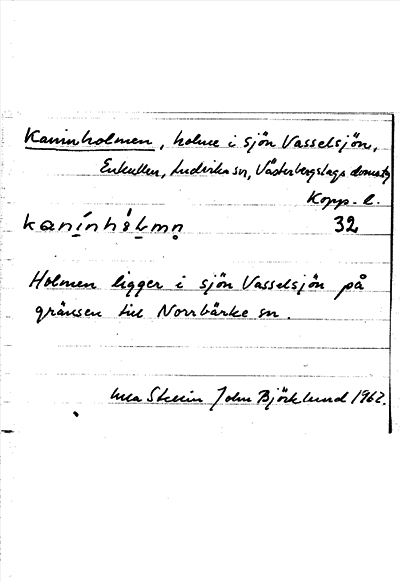 Kaninholmen, holme i sjön Vasselsjön,
Enkullen, Ludvika sn, Västerbergslags domsg
Kopp. l.
kanínhòlmn̥ 32
Holmen ligger i sjön Vasselsjön på
gränsen till Norrbärke sn.
John Björklund 1962.